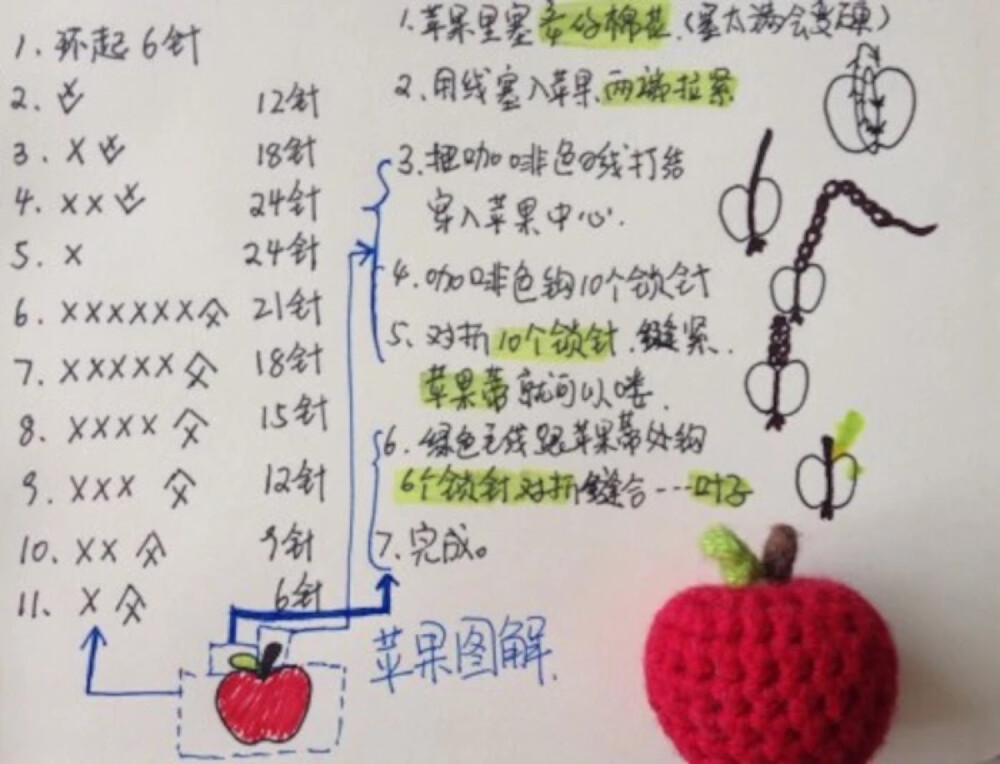 1. 环起6针
2. 12针
3. X 18针
4. XX 24针
5. X 24针
6. XXXXXX 21针
7. XXXXX 18针
8. XXXX 15针
9. XXX 12针
10. XX 9针
11. X 6针
1.苹果里塞 棉花.(塞太满会变硬)
2.用线塞入苹果.两端拉紧
3.把咖啡色的线打结
穿入苹果中心.
4.咖啡色钩10个锁针
5.对折10个锁针.缝紧.
苹果蒂就可以喽.
6.绿色毛线跟苹果蒂处钩
6个锁针对折缝合…叶子
7.完成。
苹果图解.